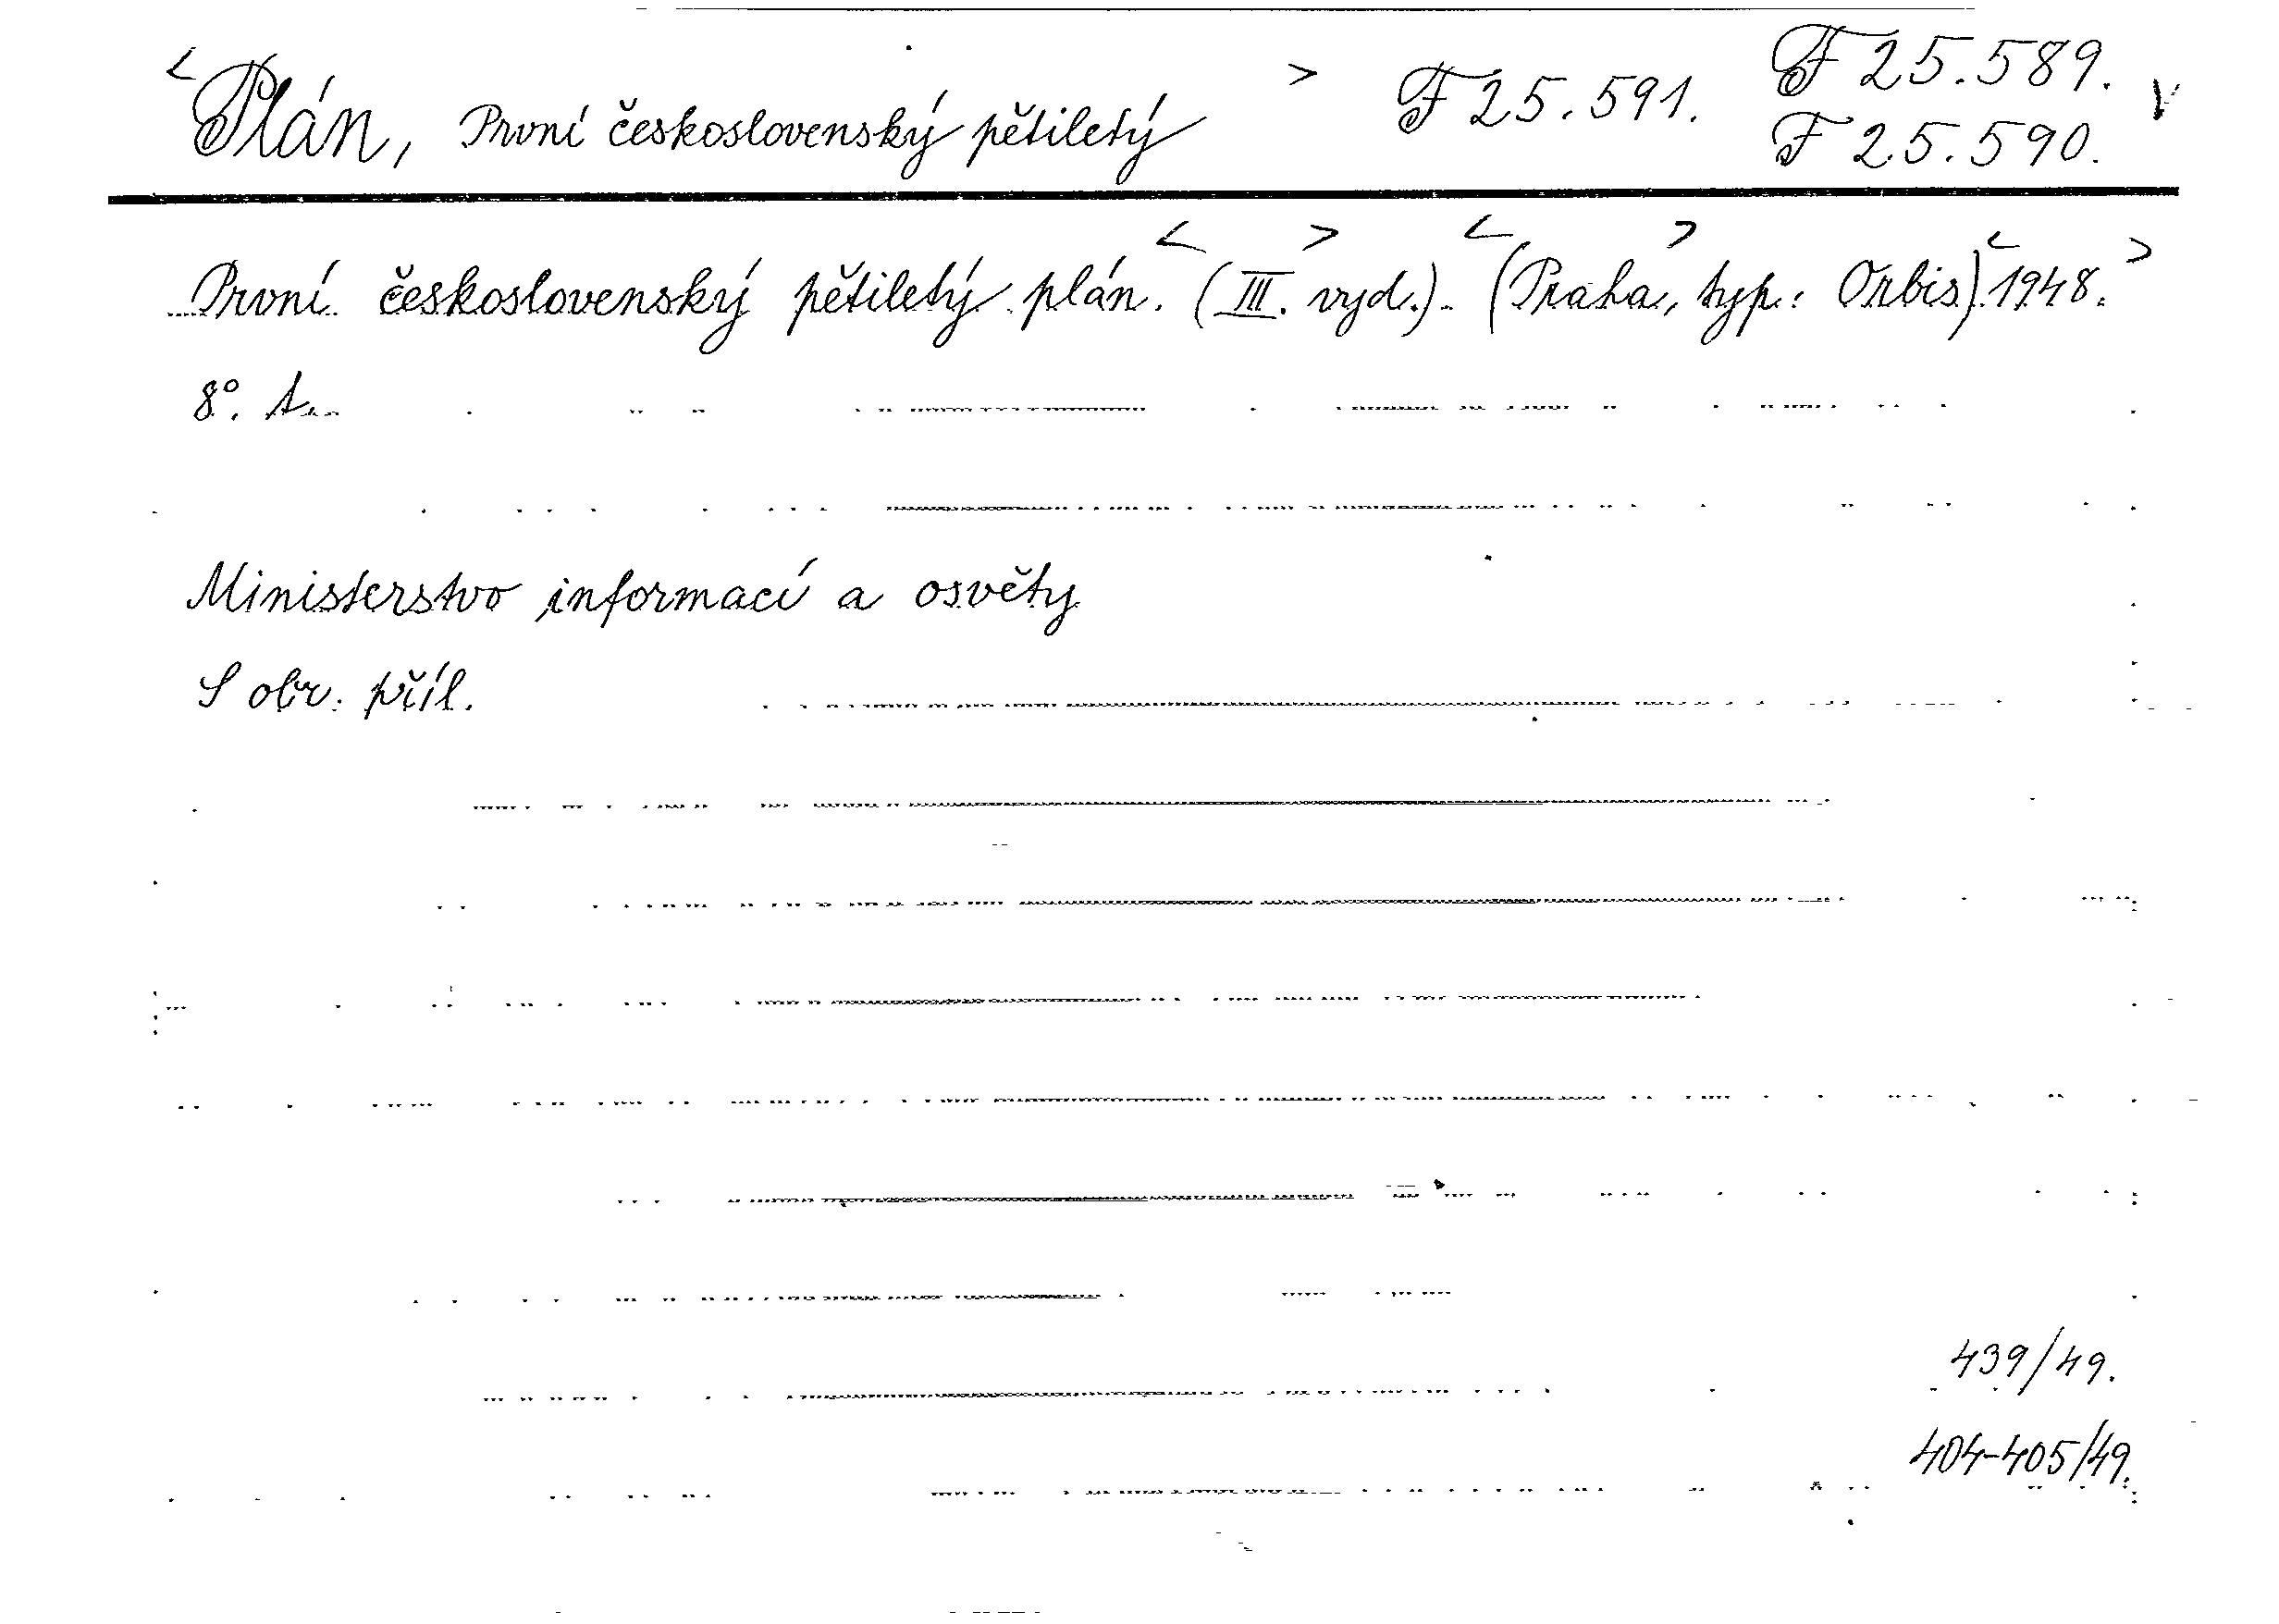 <Plán, První československý pětiletý> F 25.591. F 25.589.
F 25.590.
První československý pětiletý plán. <(III. vyd.).> <(Praha, typ.: Orbis)> <1948.>
8°. s.
Ministerstvo informací a osvěty
S obr. příl.
439/49.
404-405/49.